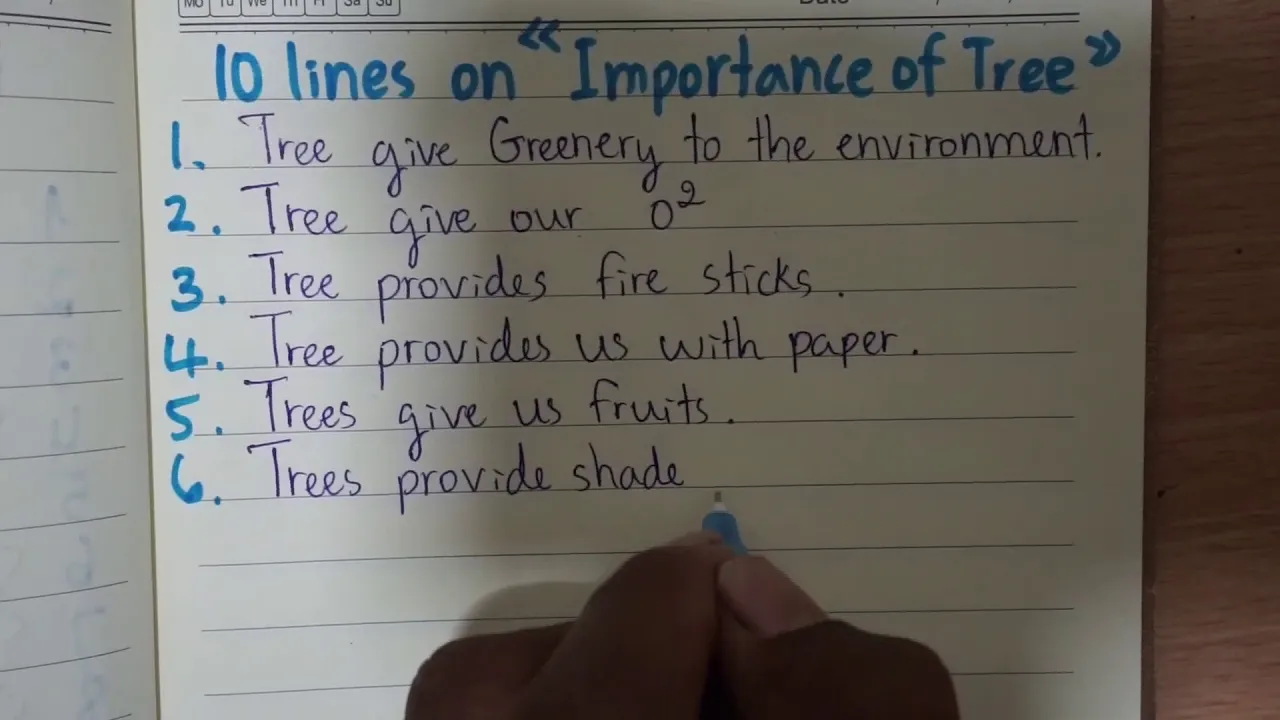 Mo Tu We Th Fr Sa Su
10 lines on "Importance of Tree"
1. Tree give Greenery to the environment.
2. Tree give our O²
3. Tree provides fire sticks.
4. Tree provides us with paper.
5. Trees give us fruits.
6. Trees provide shade